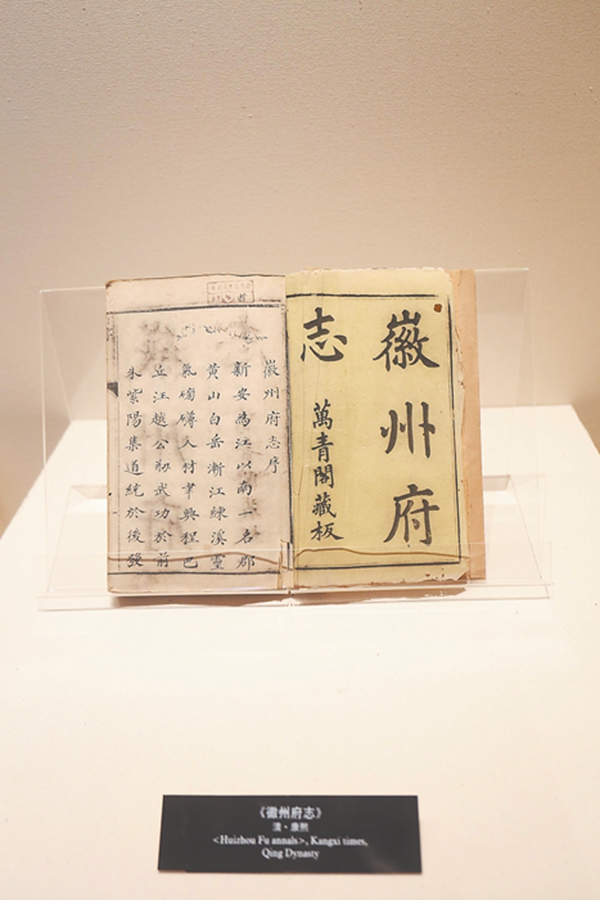 徽州府
志
萬青閣藏板
徽州府志序
新安為江以南一名郡
黃山白岳漸江練溪靈
氣磅礡人材聿興程巴
丘汪越公武功於前
朱紫陽集道統於後發
《徽州府志》
清·康熙
<Huizhou Fu annals>, Kangxi times,
Qing Dynasty